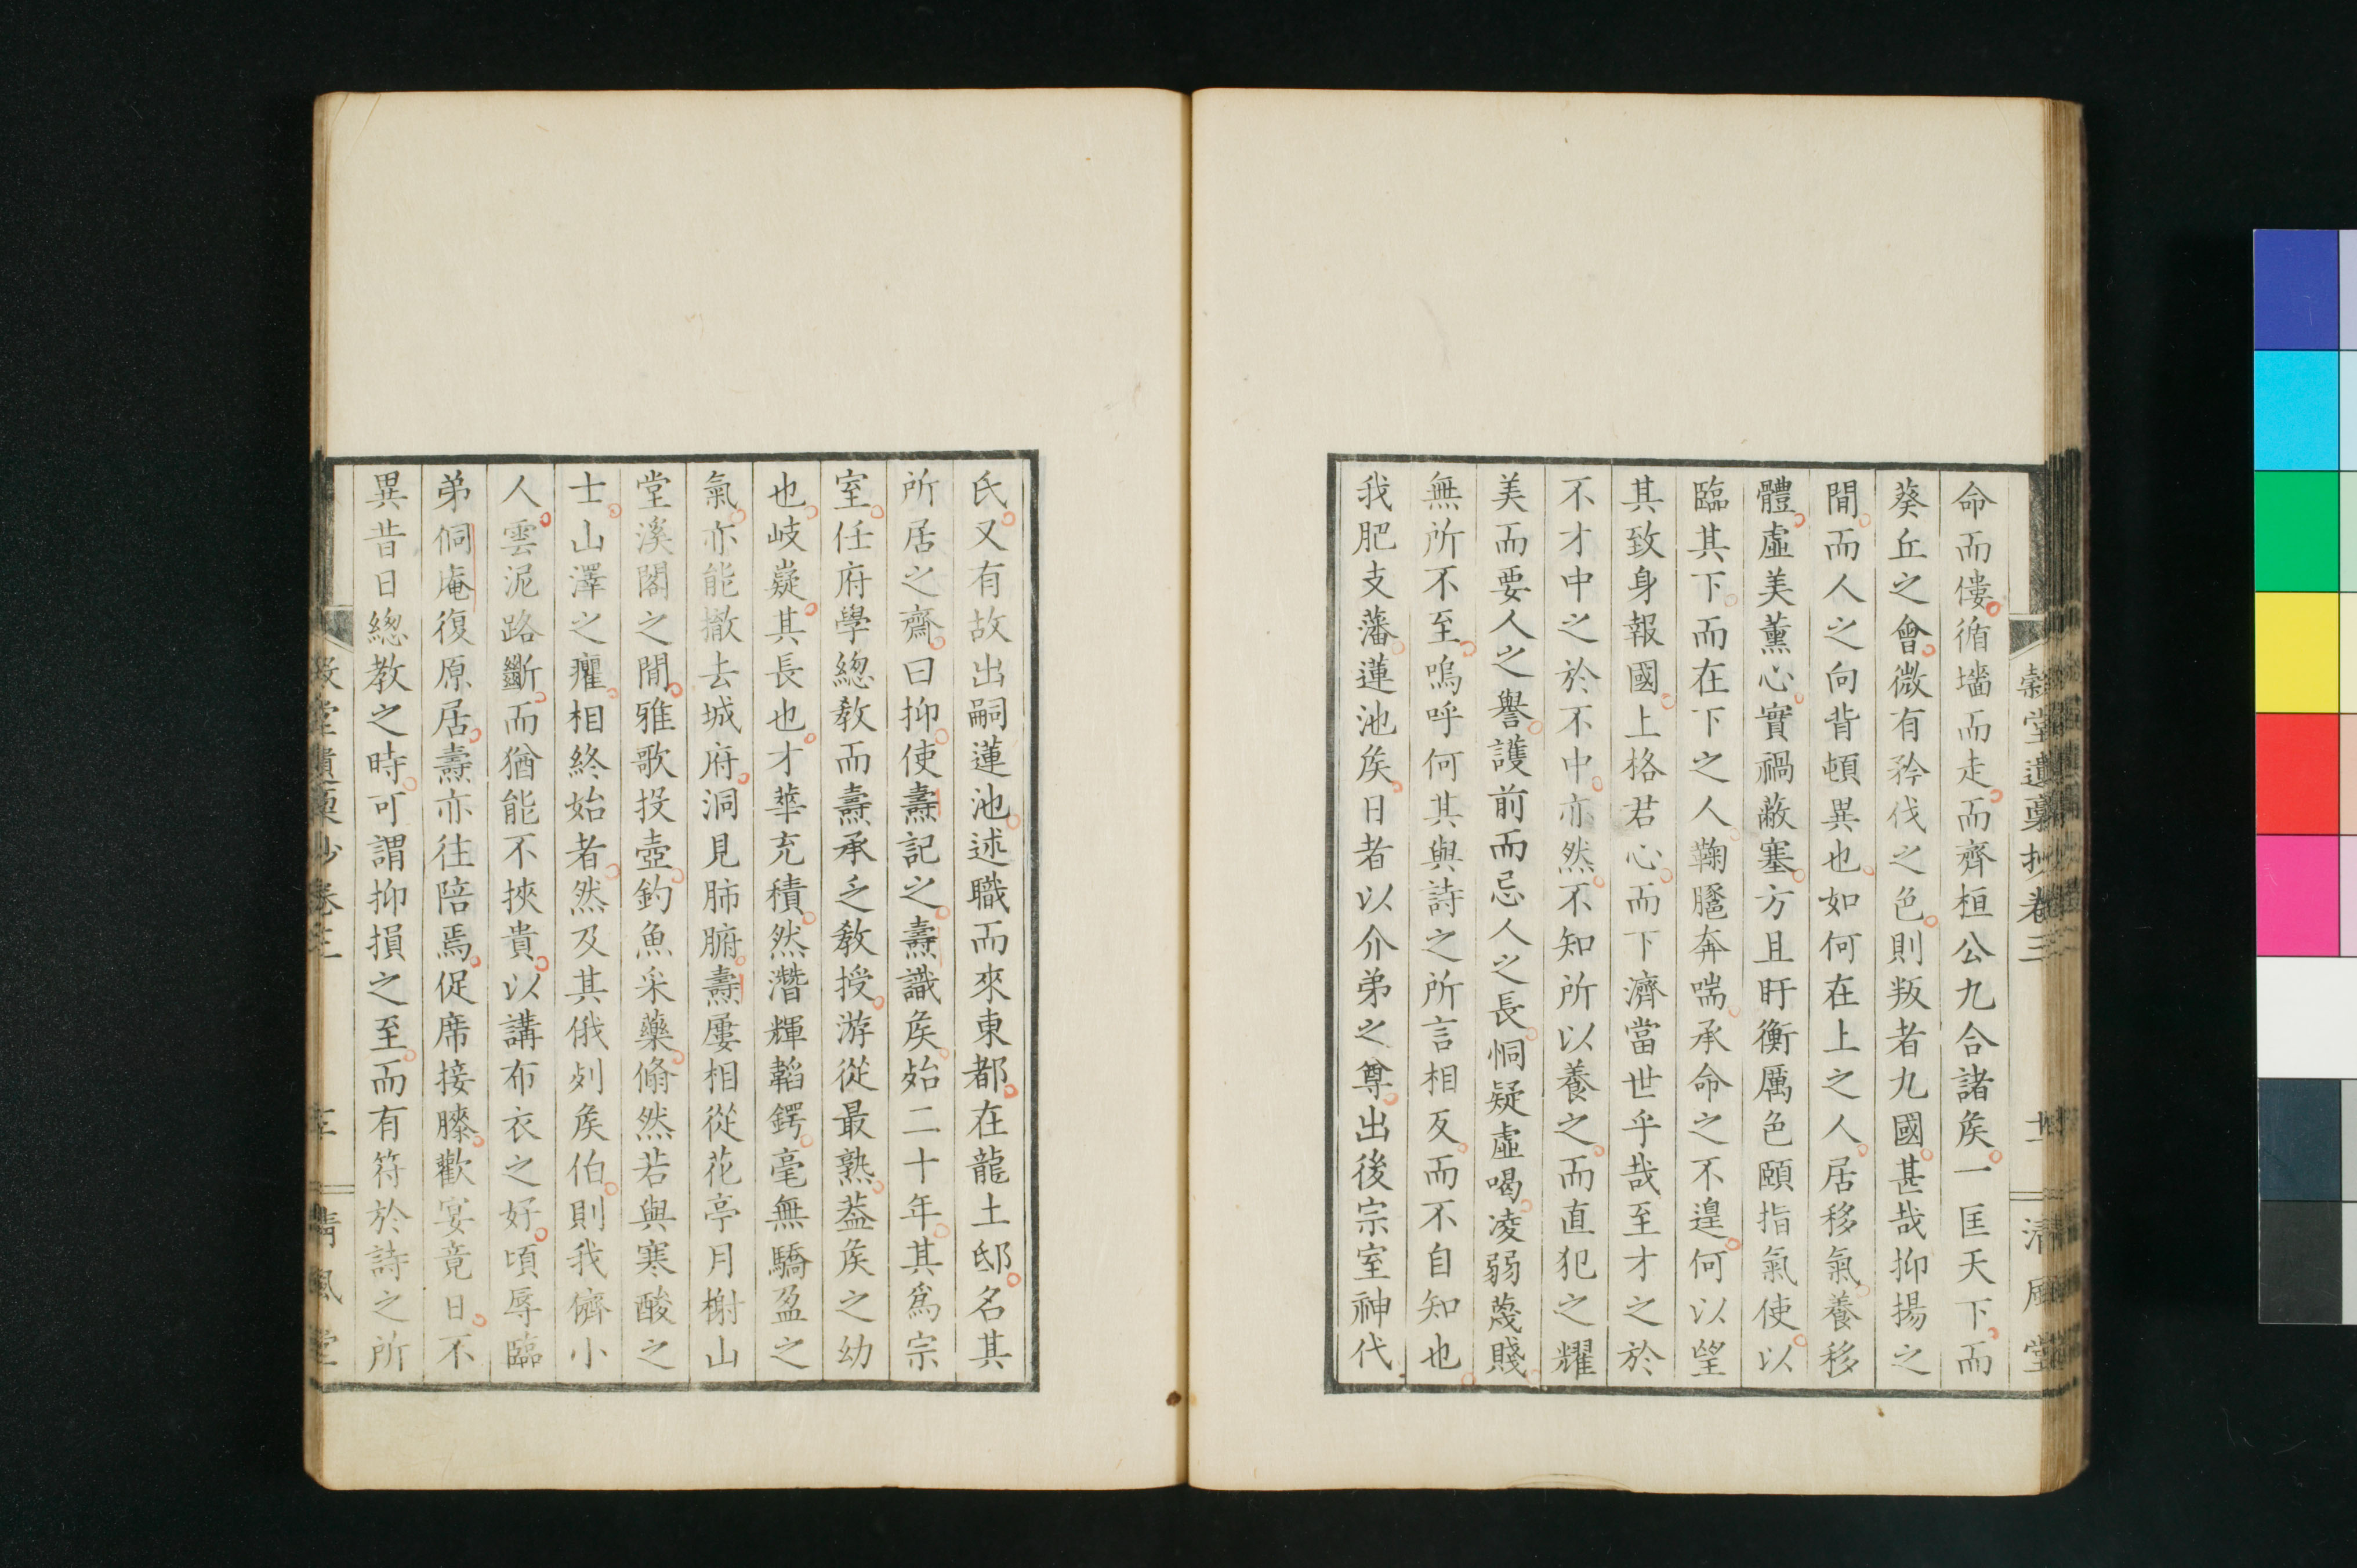 穀堂遺稾抄卷三
清風堂
命而僂循墻而走而齊桓公九合諸矦一匡天下而
葵丘之會微有矜伐之色則叛者九國甚哉抑揚之
間而人之向背頓異也如何在上之人居移氣養移
體虛美薰心實禍蔽塞方且盱衡厲色頤指氣使以
臨其下而在下之人鞠䠻奔喘承命之不遑何以望
其致身報國上格君心而下濟當世乎哉至才之於
不才中之於不中亦然不知所以養之而直犯之耀
美而要人之譽護前而忌人之長恫疑虛喝凌弱蔑賤
無所不至嗚呼何其與詩之所言相反而不自知也
我肥支藩蓮池矦日者以介弟之尊出後宗室神代
氏又有故出嗣蓮池述職而來東都在龍土邸名其
所居之齋曰抑使燾記之燾識矦殆二十年其爲宗
室任府學總敎而燾承乏敎授游從最熟葢矦之幼
也岐嶷其長也才華充積然濳輝韜鍔毫無驕盈之
氣亦能撤去城府洞見肺腑燾屢相從花亭月榭山
堂溪閣之間雅歌投壺釣魚采藥翛然若與寒酸之
士山澤之癯相終始者然及其俄列矦伯則我儕小
人雲泥路斷而猶能不挾貴以講布衣之好頃辱臨
弟侗庵復原居燾亦往陪焉促席接膝歡宴竟日不
異昔日總敎之時可謂抑損之至而有符於詩之所
堂遺稾抄卷三
清風堂